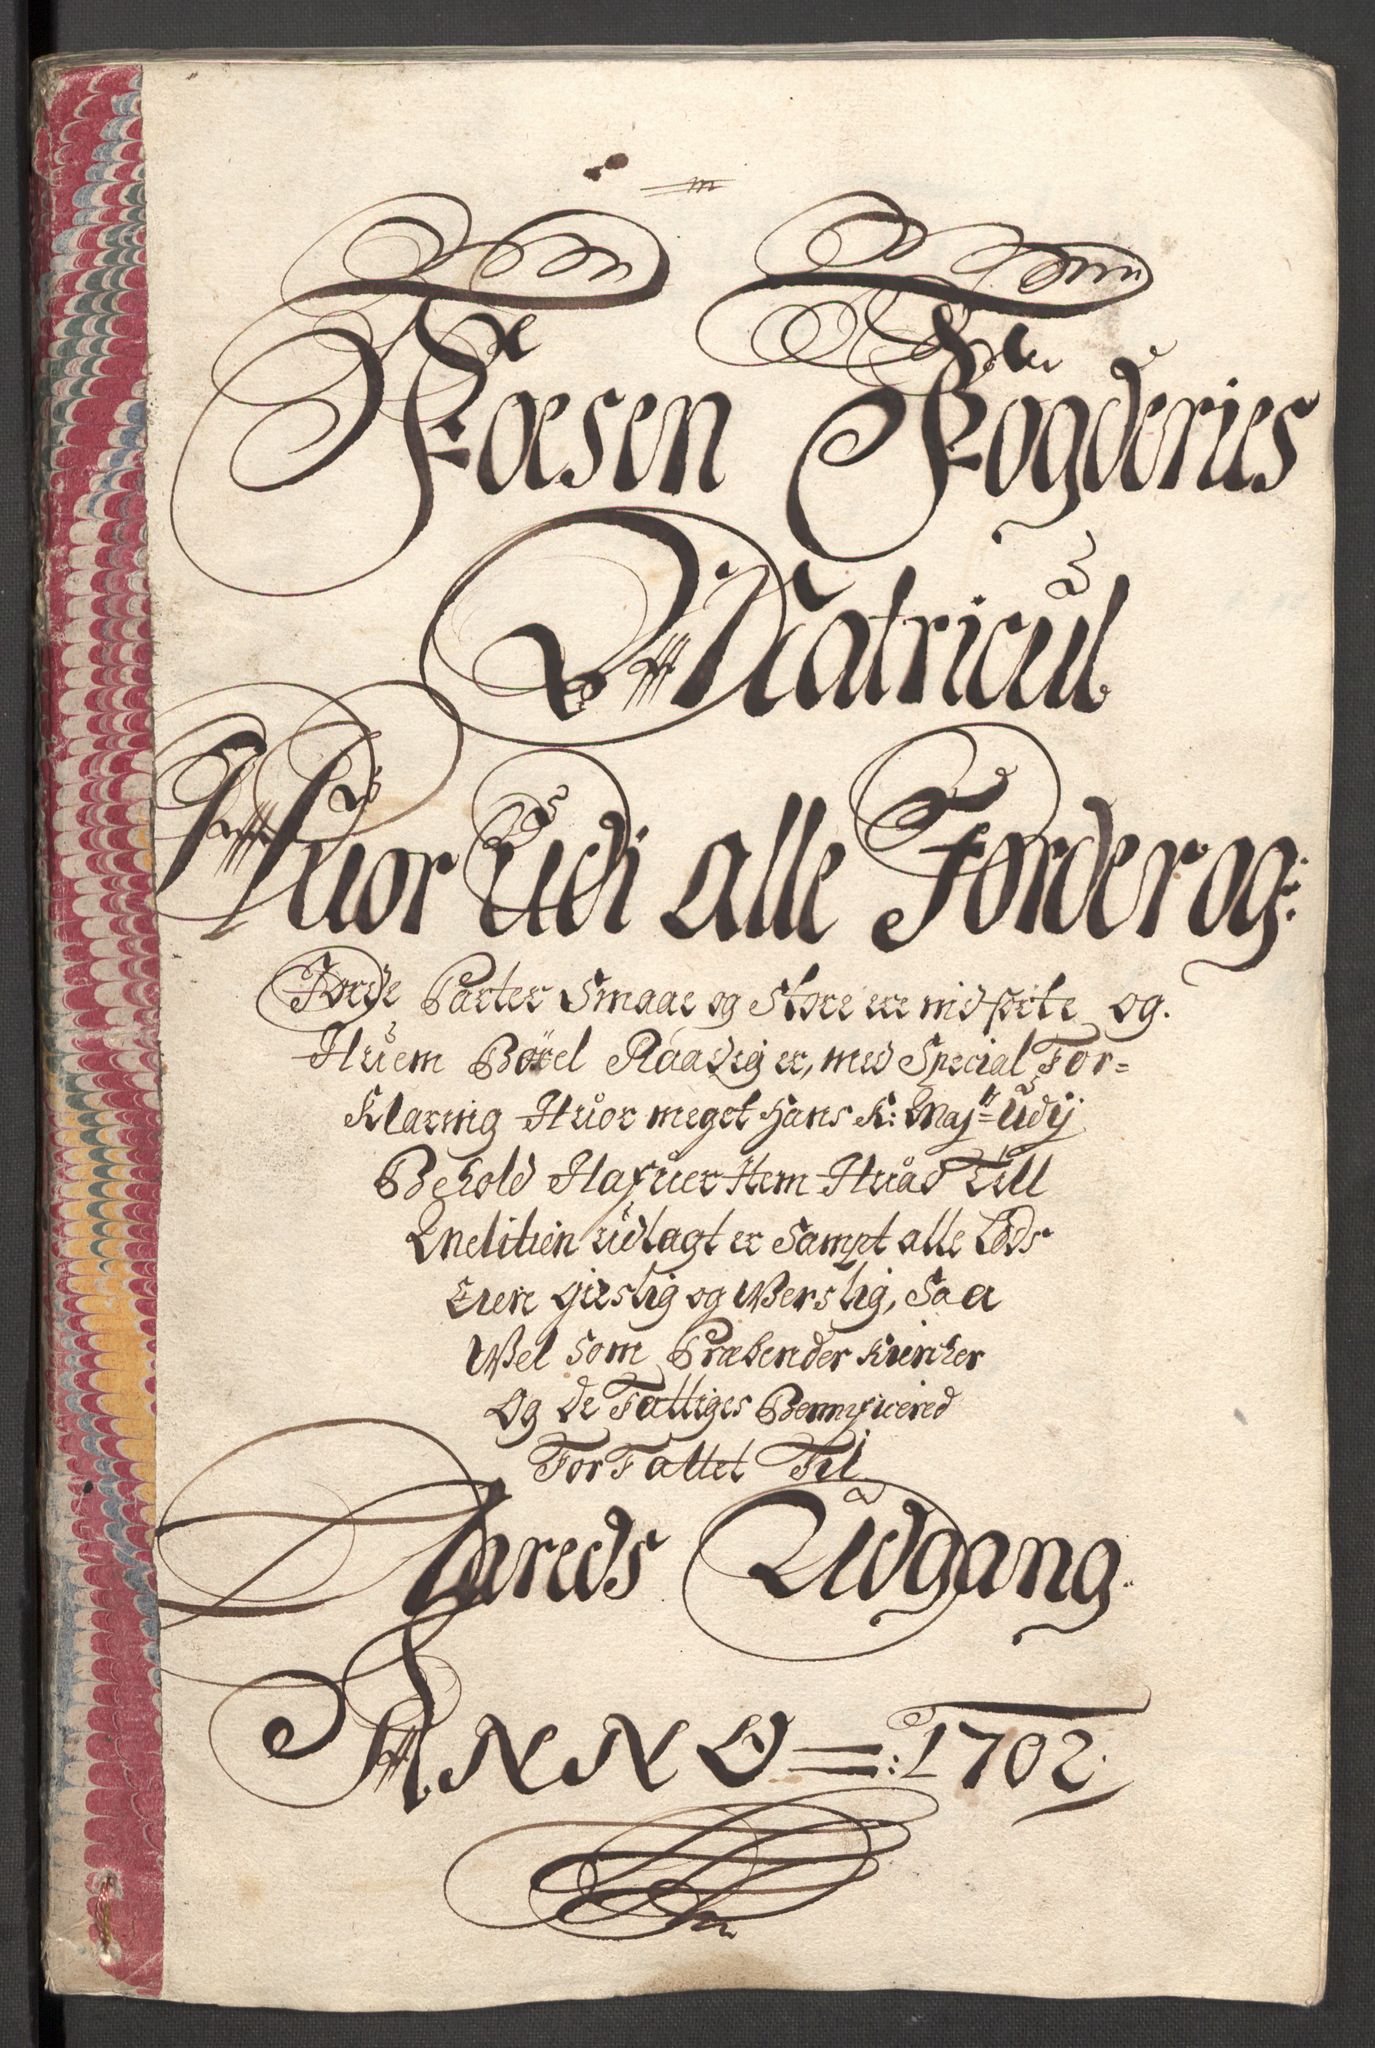 Fosen Fögderies
Matricul
Huor Udi alle Jorder og
Jorde Parter Smaae og Store ere nidførte og
Huem Böxel Raadig er, med Special For=
Klaring Huor meget Hans K: Maj:tt Udij
Behold Hafuer Item Huad Till
Melitien udlagt er Sampt alle Lods
Eiere gieslig og Werslig, Saa
Wel som Præbender Kiercher
Og de Fattiges Bennificered
ForFattet Til
Aareds Udgang
ANNO = 1702